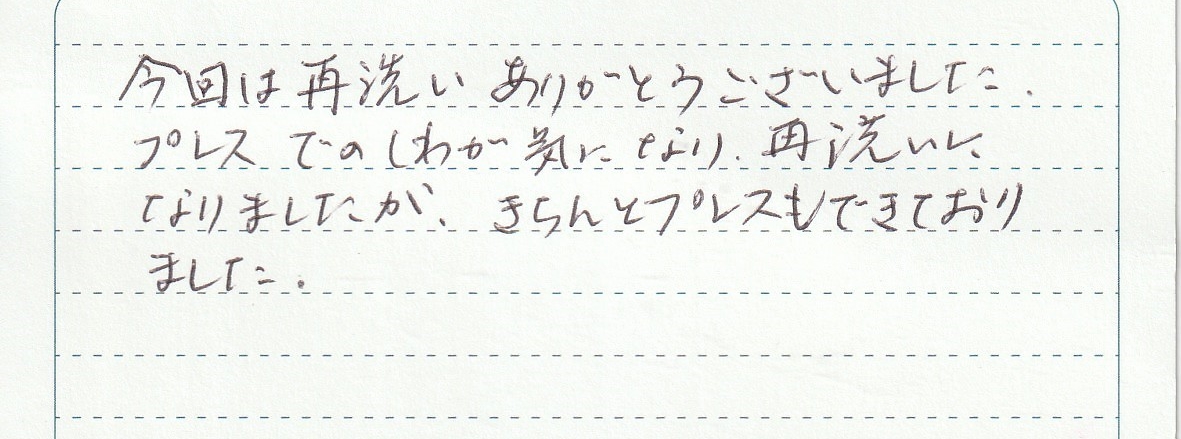 今回は再洗いありがとうございました.
プレスでのしわが気になり、再洗いに
なりましたが、きちんとプレスもできており
ました.